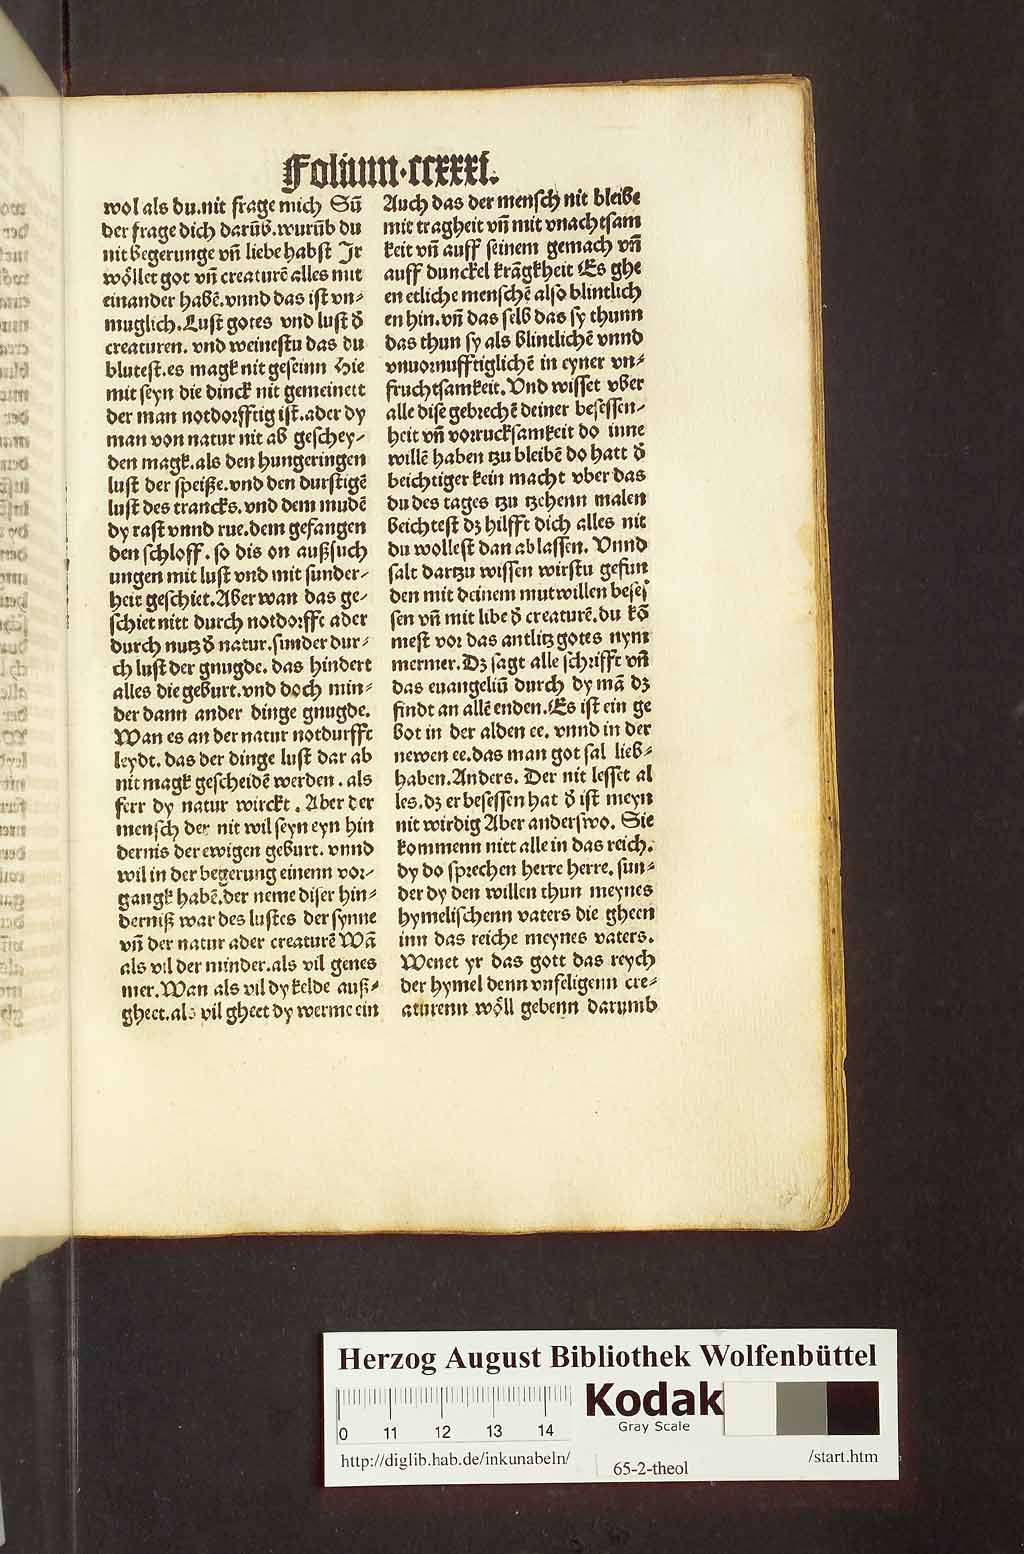 Folium·ccxxxi.
wol als du.nit frage mich Sũ
der frage dich darũb.wurũb du
nit begerunge vñ liebe habst Jr
wöllet got vñ creaturẽ alles mit
einander habẽ.vnnd das ist vn-
muglich.Lust gotes vnd lust ð
creaturen. vnd weinestu das du
blutest.es magk nit geseinn Hie
mit seyn die dinck nit gemeinett
der man notdorfftig ist.ader dy
man von natur nit ab geschey-
den magk.als den hungeringen
lust der speiße.vnd den durstigẽ
lust des trancks.vnd dem mudẽ
dy rast vnnd rue.dem gefangen
den schloff. so dis on außsuch
ungen mit lust vnd mit sunder-
heit geschiet.Aber wan das ge-
schiet nitt durch notdorfft ader
durch nutz ð natur.sunder dur-
ch lust der gnugde. das hindert
alles die geburt.vnd doch min-
der dann ander dinge gnugde.
Wan es an der natur notdurfft
leydt. das der dinge lust dar ab
nit magk gescheidẽ werden. als
ferr dy natur wirckt. Aber der
mensch der nit wil seyn eyn hin
dernis der ewigen geburt. vnnd
wil in der begerung einenn vor-
gangk habẽ.der neme diser hin-
derniß war des lustes der synne
vñ der natur ader creaturẽ Wã
als vil der minder.als vil genes
mer.Wan als vil dy kelde auß-
gheet.als vil gheet dy werme ein
Auch das der mensch nit bleibe
mit tragheit vñ mit vnachtsam
keit vñ auff seinem gemach vñ
auff dunckel krãgkheit Es ghe
en etliche menschẽ also blintlich
en hin.vñ das selb das sy thunn
das thun sy als blintlichẽ vnnd
vnuornufftiglichẽ in eyner vn-
fruchtsamkeit.Vnd wisset vber
alle dise gebrechẽ deiner besessen-
heit vñ vorrucksamkeit do inne
willẽ haben tzu bleibẽ do hatt ð
beichtiger kein macht vber das
du des tages tzu tzehenn malen
beichtest dz hilfft dich alles nit
du wollest dan ablassen. Vnnd
salt dartzu wissen wirstu gefun
den mit deinem mutwillen beses
sen vñ mit libe ð creaturẽ.du kõ
mest vor das antlitz gotes nym
mermer.Dz sagt alle schrifft vñ
das euangeliũ durch dy mã dz
findt an allẽ enden.Es ist ein ge
bot in der alden ee. vnnd in der
newen ee.das man got sal lieb-
haben.Anders. Der nit lesset al
les.dz er besessen hat ð ist meyn
nit wirdig Aber anderswo. Sie
kommenn nitt alle in das reich.
dy do sprechen herre herre. sun-
der dy den willen thun meynes
hymelischenn vaters die gheen
inn das reiche meynes vaters.
Wenet yr das gott das reych
der hymel denn vnseligenn cre-
aturenn wöll gebenn darumb
Herzog August Bibliothek Wolfenbüttel
Kodak
Gray Scale
0 11 12 13 14
http://diglib.hab.de/inkunabeln/ 65-2-theol /start.htm